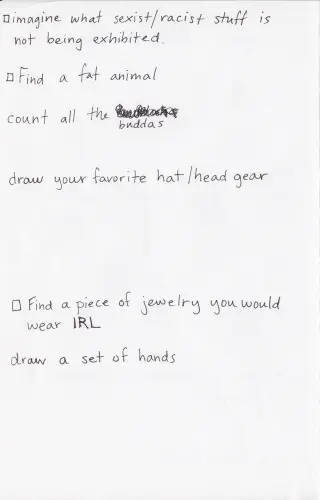 imagine what sexist/racist stuff is
not being exhibited.
Find a fat animal
count all the
buddas
draw your favorite hat/head gear
Find a piece of jewelry you would
wear IRL
draw a set of hands